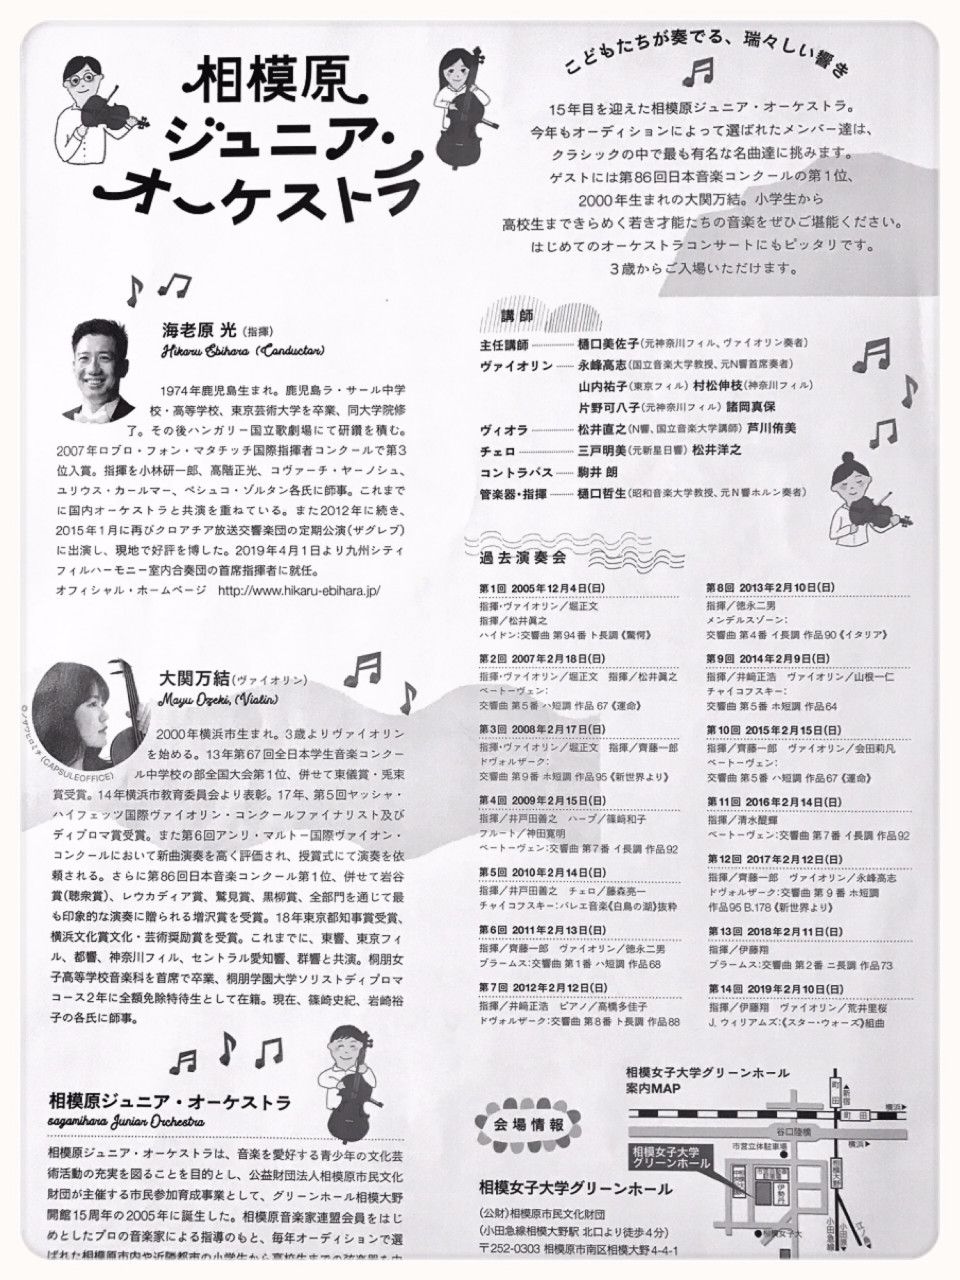 相模原
ジュニア・
オーケストラ
こどもたちが奏でる、瑞々しい響き
15年目を迎えた相模原ジュニア・オーケストラ。
今年もオーディションによって選ばれたメンバー達は、
クラシックの中で最も有名な名曲達に挑みます。
ゲストには第86回日本音楽コンクールの第1位、
2000年生まれの大関万結。小学生から
高校生まできらめく若き才能たちの音楽をぜひご堪能ください。
はじめてのオーケストラコンサートにもピッタリです。
3歳からご入場いただけます。
海老原 光（指揮）
Hikaru Ebihara (Conductor)
1974年鹿児島生まれ。鹿児島ラ・サール中学
校・高等学校、東京芸術大学を卒業、同大学院修
了。その後ハンガリー国立歌劇場にて研鑽を積む。
2007年ロブロ・フォン・マタチッチ国際指揮者コンクールで第3
位入賞。指揮を小林研一郎、高階正光、コヴァーチ・ヤーノシュ、
ユリウス・カールマー、ペシュコ・ゾルタン各氏に師事。これまで
に国内オーケストラと共演を重ねている。また2012年に続き、
2015年1月に再びクロアチア放送交響楽団の定期公演（ザグレブ）
に出演し、現地で好評を博した。2019年4月1日より九州シティ
フィルハーモニー室内合奏団の首席指揮者に就任。
オフィシャル・ホームページ http://www.hikaru-ebihara.jp/
大関万結（ヴァイオリン）
Mayu Ozeki, (Violin)
©ノザワヒロミチ(CAPSULEOFFICE)
2000年横浜市生まれ。3歳よりヴァイオリン
を始める。13年第67回全日本学生音楽コンクー
ル中学校の部全国大会第1位、併せて東儀賞・兎束
賞受賞。14年横浜市教育委員会より表彰。17年、第5回ヤッシャ・
ハイフェッツ国際ヴァイオリン・コンクールファイナリスト及び
ディプロマ賞受賞。また第6回アンリ・マルトー国際ヴァイオン・
コンクールにおいて新曲演奏を高く評価され、授賞式にて演奏を依
頼される。さらに第86回日本音楽コンクール第1位、併せて岩谷
賞（聴衆賞）、レウカディア賞、鷲見賞、黒柳賞、全部門を通じて最
も印象的な演奏に贈られる増沢賞を受賞。18年東京都知事賞受賞、
横浜文化賞文化・芸術奨励賞を受賞。これまでに、東響、東京フィ
ル、都響、神奈川フィル、セントラル愛知響、群響と共演。桐朋女
子高等学校音楽科を首席で卒業、桐朋学園大学ソリストディプロマ
コース2年に全額免除特待生として在籍。現在、篠崎史紀、岩崎裕
子の各氏に師事。
相模原ジュニア・オーケストラ
sagamihara Junior Orchestra
相模原ジュニア・オーケストラは、音楽を愛好する青少年の文化芸
術活動の充実を図ることを目的とし、公益財団法人相模原市民文化
財団が主催する市民参加育成事業として、グリーンホール相模大野
開館15周年の2005年に誕生した。相模原音楽家連盟会員をはじ
めとしたプロの音楽家による指導のもと、毎年オーディションで選
ばれた相模原市内や近隣都市の小学生から高校生までの弦楽器を中
講師
主任講師 樋口美佐子（元神奈川フィル、ヴァイオリン奏者）
ヴァイオリン 永峰高志（国立音楽大学教授、元N響首席奏者）
山内祐子（東京フィル） 村松伸枝（神奈川フィル）
片野可八子（元神奈川フィル） 諸岡真保
ヴィオラ 松井直之（N響、国立音楽大学講師） 芦川侑美
チェロ 三戸明美（元新星日響） 松井洋之
コントラバス 駒井 朗
管楽器・指揮 樋口哲生（昭和音楽大学教授、元N響ホルン奏者）
過去演奏会
第1回 2005年12月4日(日)
指揮・ヴァイオリン／堀正文
指揮／松井眞之
ハイドン：交響曲 第94番 ト長調《驚愕》
第2回 2007年2月18日(日)
指揮・ヴァイオリン／堀正文 指揮／松井眞之
ベートーヴェン：
交響曲 第5番 ハ短調 作品67《運命》
第3回 2008年2月17日(日)
指揮・ヴァイオリン／堀正文 指揮／齊藤一郎
ドヴォルザーク：
交響曲 第9番 ホ短調 作品95《新世界より》
第4回 2009年2月15日(日)
指揮／井戸田善之 ハープ／篠﨑和子
フルート／神田寛明
ベートーヴェン：交響曲 第7番 イ長調 作品92
第5回 2010年2月14日(日)
指揮／井戸田善之 チェロ／藤森亮一
チャイコフスキー：バレエ音楽《白鳥の湖》抜粋
第6回 2011年2月13日(日)
指揮／齊藤一郎 ヴァイオリン／徳永二男
ブラームス：交響曲 第1番 ハ短調 作品68
第7回 2012年2月12日(日)
指揮／井﨑正浩 ピアノ／高橋多佳子
ドヴォルザーク：交響曲 第8番 ト長調 作品88
第8回 2013年2月10日(日)
指揮／徳永二男
メンデルスゾーン：
交響曲 第4番 イ長調 作品90《イタリア》
第9回 2014年2月9日(日)
指揮／井﨑正浩 ヴァイオリン／山根一仁
チャイコフスキー：
交響曲 第5番 ホ短調 作品64
第10回 2015年2月15日(日)
指揮／齊藤一郎 ヴァイオリン／会田莉凡
ベートーヴェン：
交響曲 第5番 ハ短調 作品67《運命》
第11回 2016年2月14日(日)
指揮／清水醍輝
ベートーヴェン：交響曲 第7番 イ長調 作品92
第12回 2017年2月12日(日)
指揮／齊藤一郎 ヴァイオリン／永峰高志
ドヴォルザーク：交響曲 第9番 ホ短調
作品95 B.178《新世界より》
第13回 2018年2月11日(日)
指揮／伊藤翔
ブラームス：交響曲 第2番 ニ長調 作品73
第14回 2019年2月10日(日)
指揮／伊藤翔 ヴァイオリン／荒井里桜
J. ウィリアムズ：《スター・ウォーズ》組曲
会場情報
相模女子大学グリーンホール
(公財)相模原市民文化財団
(小田急線相模大野駅 北口より徒歩4分)
〒252-0303 相模原市南区相模大野4-4-1
相模女子大学グリーンホール
案内MAP
町田
新宿
町田
横浜
谷口陸橋
横浜
市営立体駐車場
相模女子大学
グリーンホール
伊勢丹
相模大野
相模女子大
小田急線
小田原